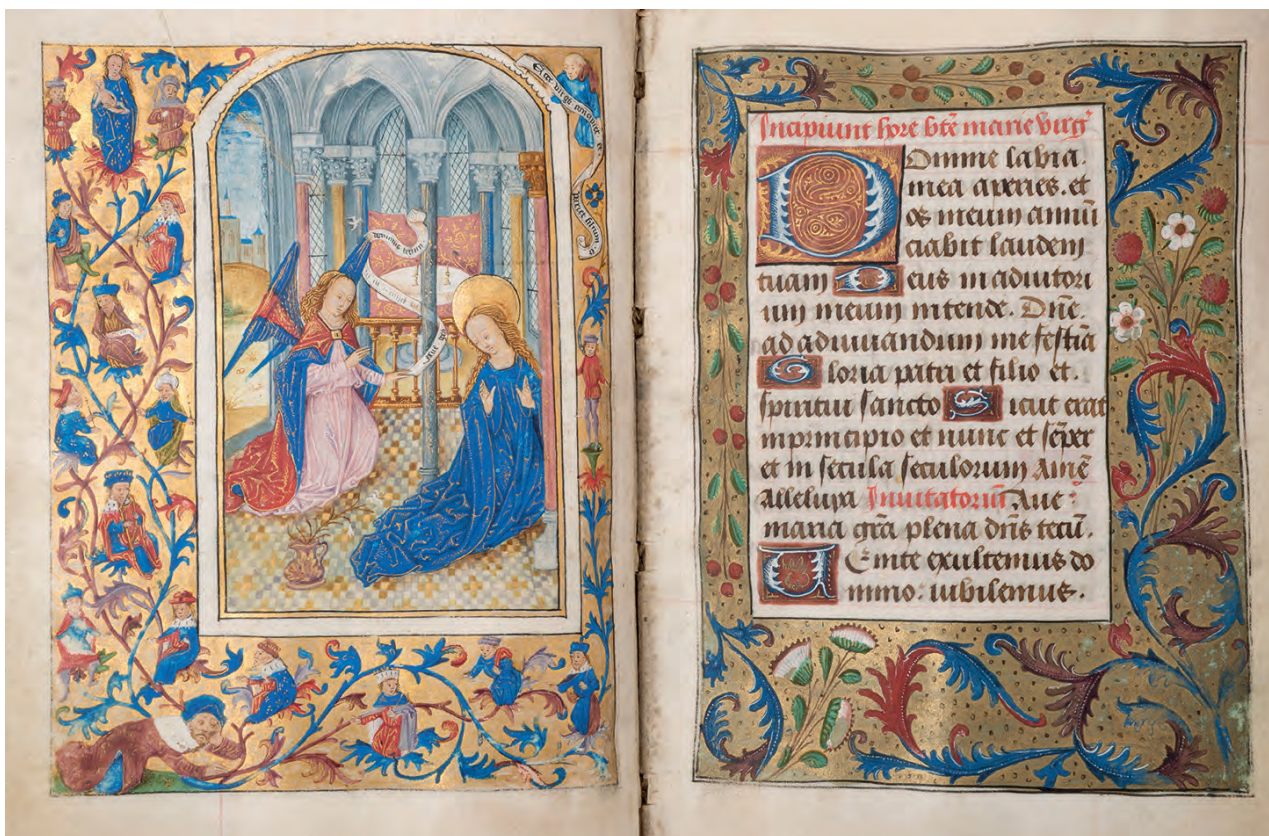 Ecce virgo concipiet et
pariet filium
ave gra
dominus tecum
Incipiunt hore bte marie virg
Domine labia
mea aperies. et
os meum annun
ciabit laudem
tuam Deus in adiutori
um meum intende. Dne
ad adiuuandum me festia
Gloria patri et filio et
spiritui sancto Sicut erat
in principio et nunc et semper
et in secula seculorum Amē
Alleluya Inuitatoriū Aue
maria gra plena dns tecū.
Uenite exultemus do
mino: iubilemus.